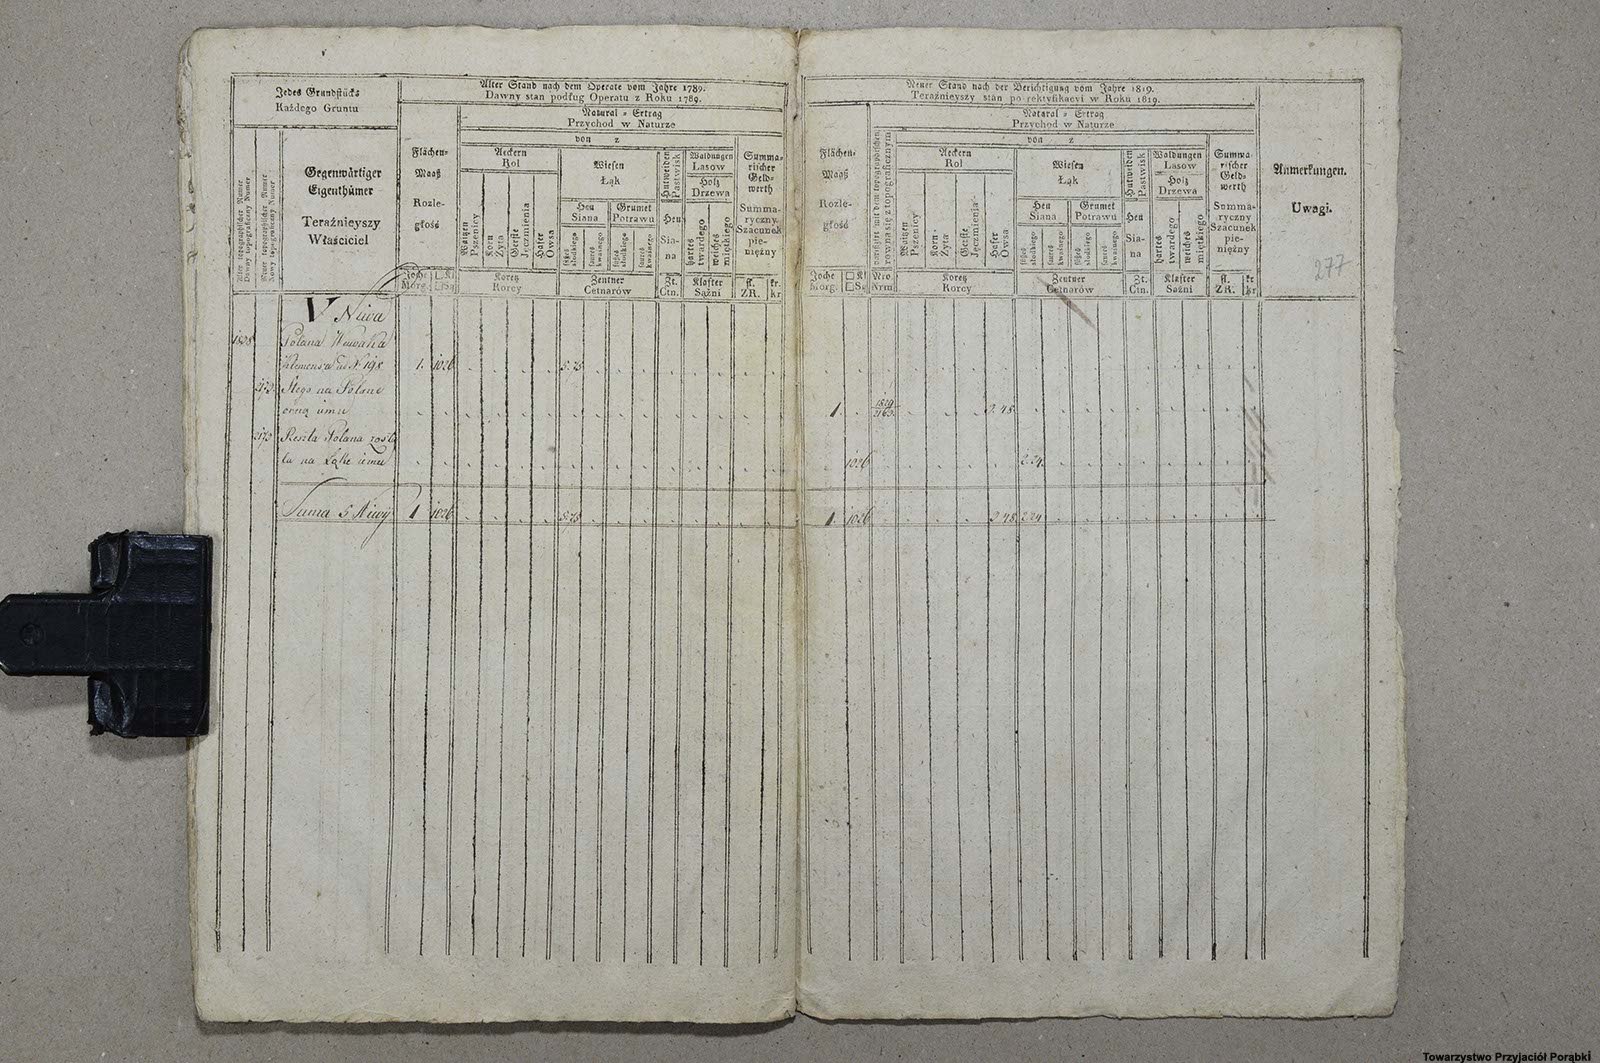 Jedes Grundstücks
Każdego Gruntu
Alter topographischer Numer
Dawny topograficzny Numer
Neuer topographischer Numer
Nowy topograficzny Numer
Gegenwärtiger
Eigenthümer
Teraźnieyszy
Właściciel
Alter Stand nach dem Operate vom Jahre 1789.
Dawny stan podług Operatu z Roku 1789.
Flächen-
Maaß
Rozle-
głość
Joche □Kl
Morg. □Są
Natural-Ertrag
Przychod w Naturze
von z
Aeckern
Rol
Waitzen
Pszenicy
Korn
Żyta
Gerste
Jęczmienia
Hafer
Owsa
Koretz
Korcy
Wiesen
Łąk
Heu
Siana
Grumet
Potrawu
süßes
słodkiego
saures
kwasnego
süßes
słodkiego
saures
kwasnego
Zentner
Cetnarów
Hutweiden
Pastwisk
Heu
Sia-
na
Zt.
Ctn.
Waldungen
Lasow
Holz
Drzewa
hartes
twardego
weiches
miętkiego
Klafter
Sążni
Summa-
rischer
Geld-
werth
Summa-
ryczny
Szacunek
pie-
niężny
fl. kr.
ZR. kr
Neuer Stand nach der Berichtigung vom Jahre 1819.
Teraźnieyszy stan po rektyfikacyi w Roku 1819.
Flächen-
Maaß
Rozle-
głość
Joche □Kl
Morg. □Są
vergleicht mit dem topographischen
rowna się z topograficznym
Nro.
Nrm
Natural-Ertrag
Przychod w Naturze
von z
Aeckern
Rol
Waitzen
Pszenicy
Korn
Żyta
Gerste
Jęczmienia
Hafer
Owsa
Koretz
Korcy
Wiesen
Łąk
Heu
Siana
Grumet
Potrawu
süßes
słodkiego
saures
kwasnego
süßes
słodkiego
saures
kwasnego
Zentner
Cetnarów
Hutweiden
Pastwisk
Heu
Sia-
na
Zt.
Ctn.
Waldungen
Lasow
Holz
Drzewa
hartes
twardego
weiches
miętkiego
Klafter
Sążni
Summa-
rischer
Geld-
werth
Summa-
ryczny
Szacunek
pie-
niężny
fl. kr
ZR. kr
Anmerkungen.
Uwagi.
277
V Niwa
Polana
Klemensa ad N 198 1. 1026 5.75
Tego na Polane
1. 3.48
2173 Reszta Polana zosta
ła na Łąkę 1026 2.24
Suma 5 Niwy 1 1026 5.75 1. 1026 3.48 2.24
Towarzystwo Przyjaciół Porąbki